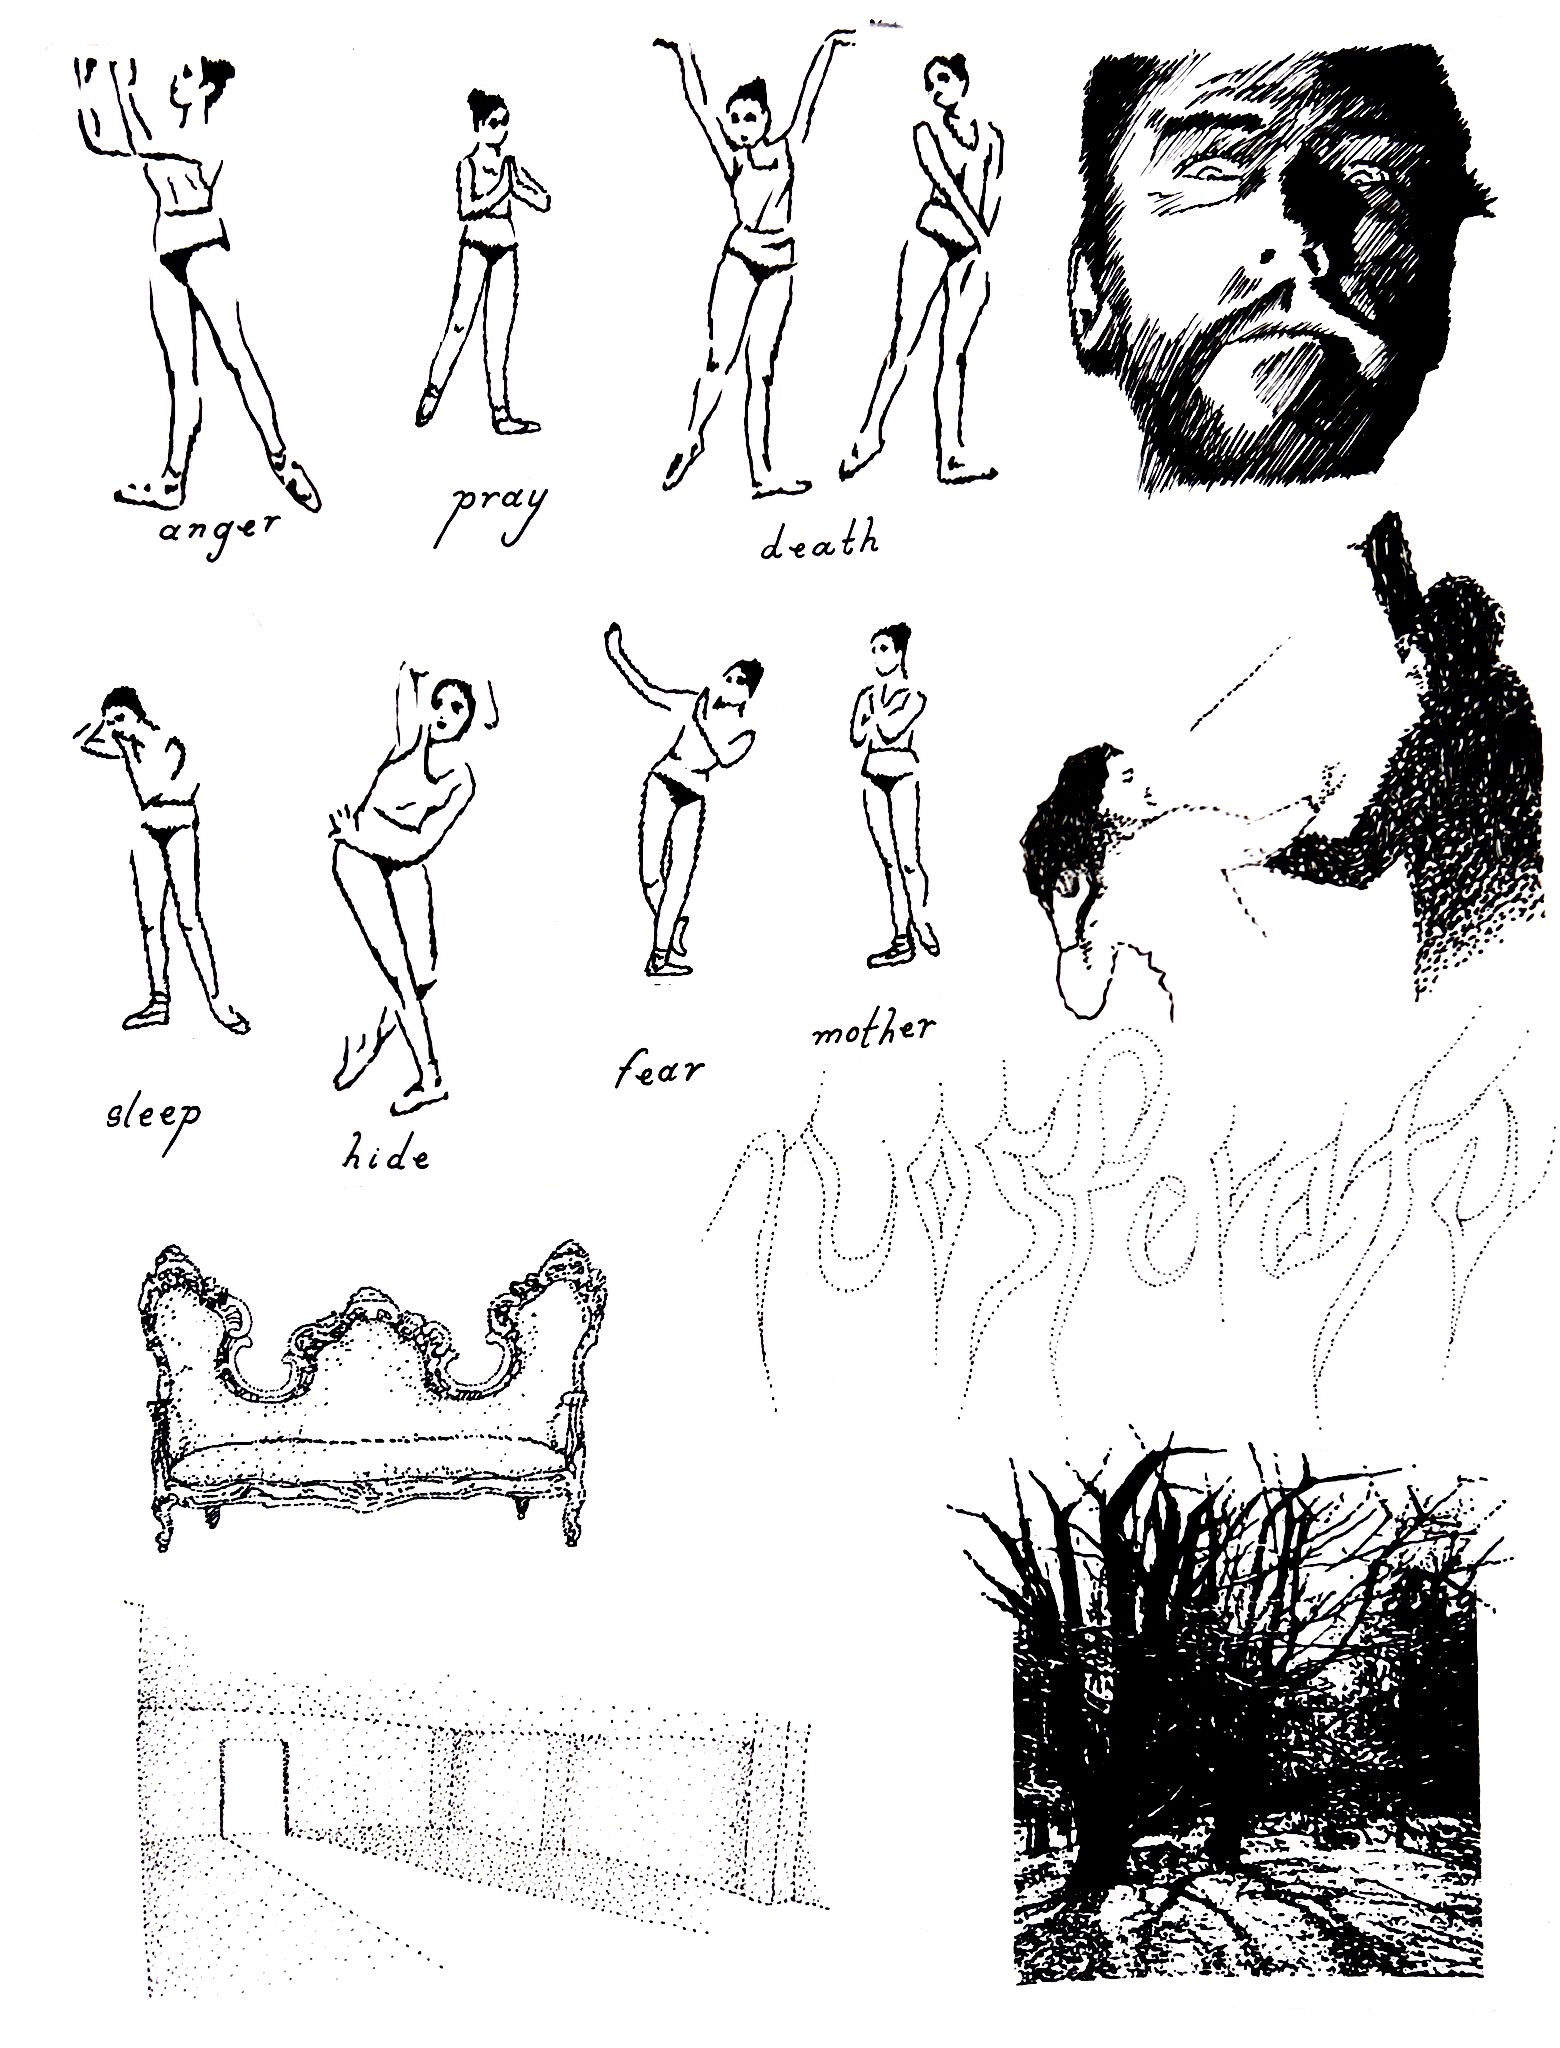 anger
pray
death
sleep
hide
fear
mother
nosferatu